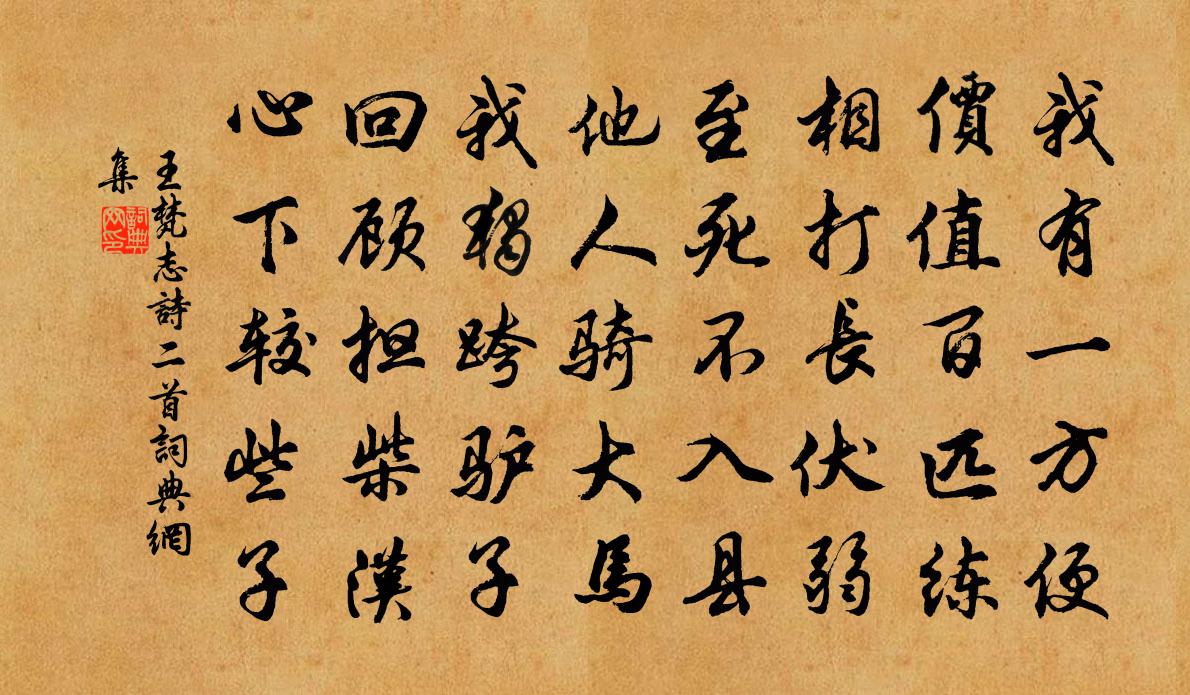 我有一方便
價值百匹练
相打長伏弱
至死不入县
他人骑大馬
我獨跨驴子
回顾担柴漢
心下较些子
王梵志詩二首詞典網
集
詞典
网印